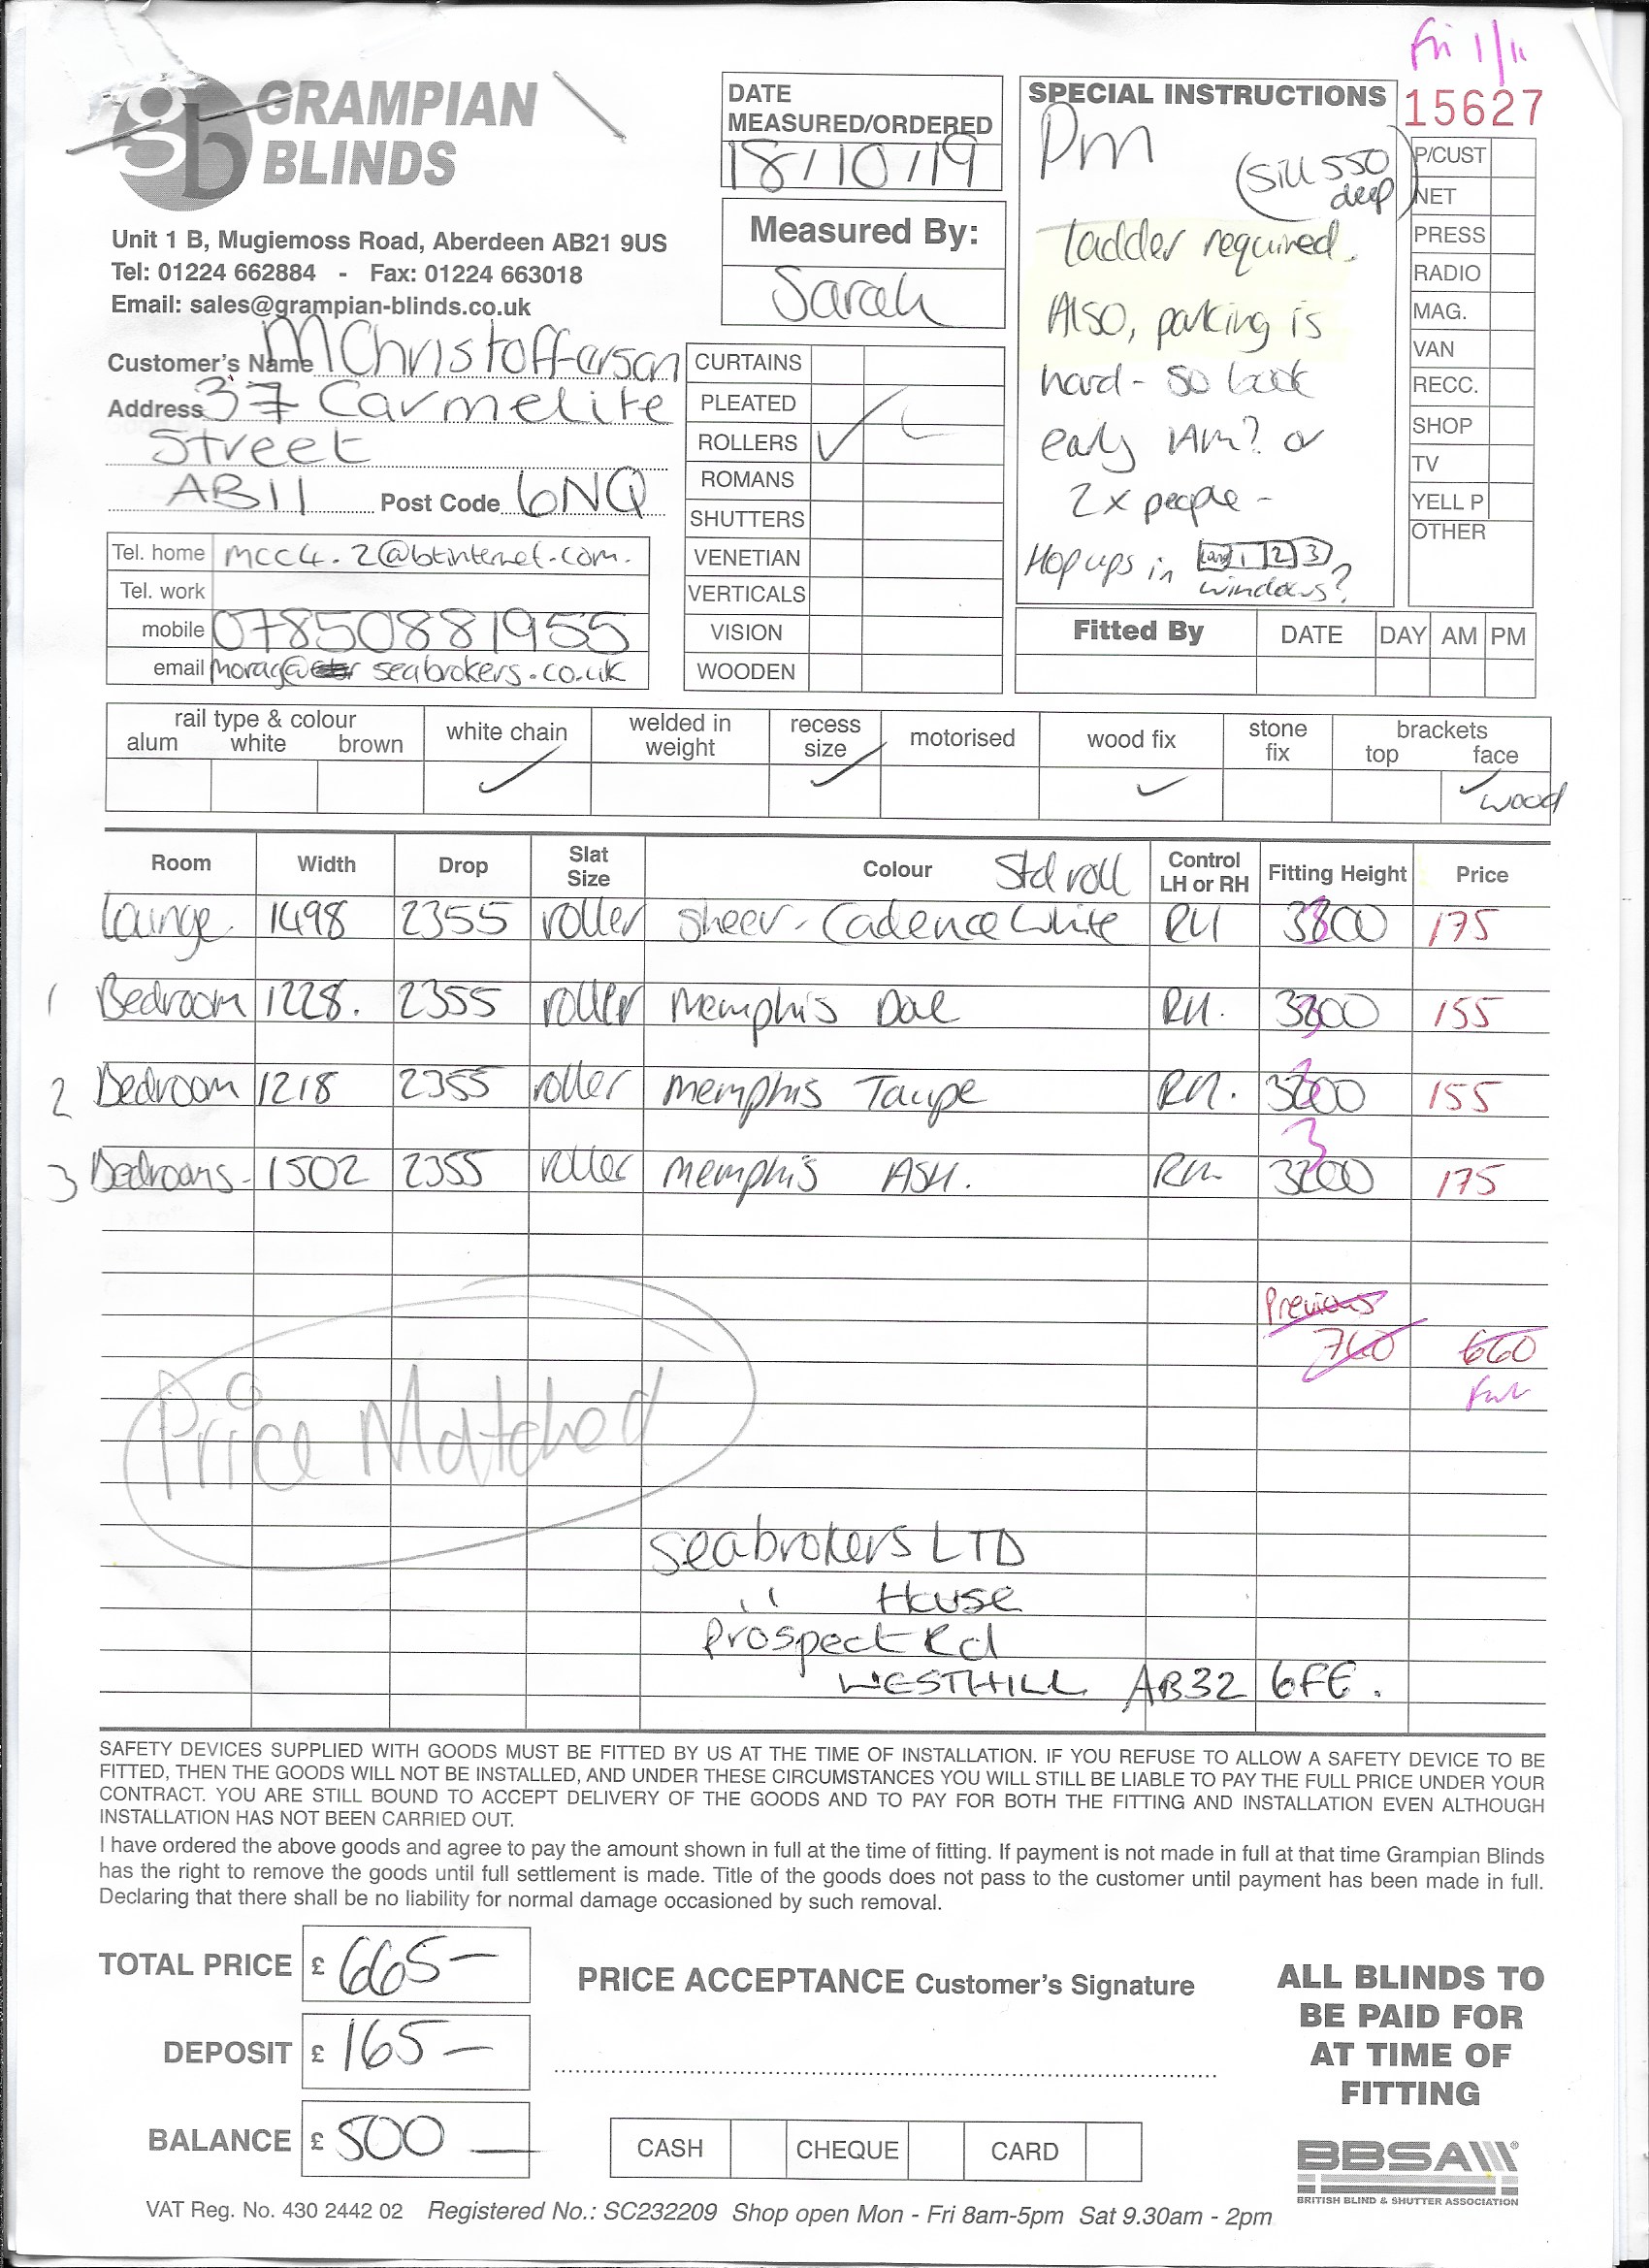 Fri 1/11
GRAMPIAN
BLINDS
Unit 1 B, Mugiemoss Road, Aberdeen AB21 9US
Tel: 01224 662884 - Fax: 01224 663018
Email: sales@grampian-blinds.co.uk
Customer's Name M Christofferson
Address 37 Carmelite
Street
AB11 Post Code 6NQ
Tel. home mcc4.2@btinternet.com.
Tel. work
mobile 07850881955
email morag@ seabrokers.co.uk
DATE
MEASURED/ORDERED
18/10/19
Measured By:
Sarah
CURTAINS
PLEATED
ROLLERS ✓
ROMANS
SHUTTERS
VENETIAN
VERTICALS
VISION
WOODEN
SPECIAL INSTRUCTIONS
Pm
(Sill 550
deep)
Ladder required.
Also, parking is
hard - so book
early AM? or
2x people -
Hop ups in 1 2 3
windows?
15627
P/CUST
NET
PRESS
RADIO
MAG.
VAN
RECC.
SHOP
TV
YELL P
OTHER
Fitted By DATE DAY AM PM
rail type & colour
alum white brown
white chain ✓
welded in
weight
recess
size ✓
motorised
wood fix ✓
stone
fix
brackets
top face
✓ wood
Room Width Drop Slat Size Colour Std roll Control LH or RH Fitting Height Price
Lounge 1498 2355 roller sheer - Cadence White RH 3300 175
1 Bedroom 1228. 2355 roller Memphis RH. 3300 155
2 Bedroom 1218 2355 roller Memphis Taupe RH. 3300 155
3 Bedrooms 1502 2355 roller Memphis ASH. RH 3300 175
Previous
760 660
Price Matched
Seabrokers LTD
" House
Prospect Rd
WESTHILL AB32 6FE.
SAFETY DEVICES SUPPLIED WITH GOODS MUST BE FITTED BY US AT THE TIME OF INSTALLATION. IF YOU REFUSE TO ALLOW A SAFETY DEVICE TO BE
FITTED, THEN THE GOODS WILL NOT BE INSTALLED, AND UNDER THESE CIRCUMSTANCES YOU WILL STILL BE LIABLE TO PAY THE FULL PRICE UNDER YOUR
CONTRACT. YOU ARE STILL BOUND TO ACCEPT DELIVERY OF THE GOODS AND TO PAY FOR BOTH THE FITTING AND INSTALLATION EVEN ALTHOUGH
INSTALLATION HAS NOT BEEN CARRIED OUT.
I have ordered the above goods and agree to pay the amount shown in full at the time of fitting. If payment is not made in full at that time Grampian Blinds
has the right to remove the goods until full settlement is made. Title of the goods does not pass to the customer until payment has been made in full.
Declaring that there shall be no liability for normal damage occasioned by such removal.
TOTAL PRICE £ 665-
DEPOSIT £ 165-
BALANCE £ 500-
PRICE ACCEPTANCE Customer's Signature
CASH CHEQUE CARD
ALL BLINDS TO
BE PAID FOR
AT TIME OF
FITTING
BBSA
BRITISH BLIND & SHUTTER ASSOCIATION
VAT Reg. No. 430 2442 02 Registered No.: SC232209 Shop open Mon - Fri 8am-5pm Sat 9.30am - 2pm